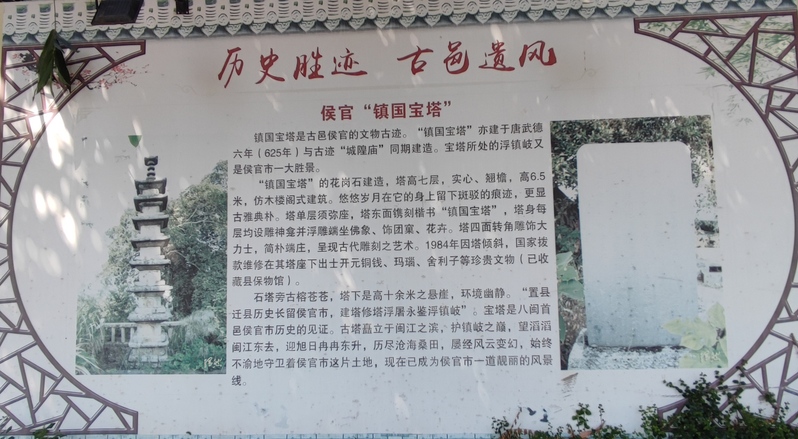 历史胜迹 古邑遗风
侯官“镇国宝塔”
镇国宝塔是古邑侯官的文物古迹。“镇国宝塔”亦建于唐武德
六年（625年）与古迹“城隍庙”同期建造。宝塔所处的浮镇岐又
是侯官市一大胜景。
“镇国宝塔”的花岗石建造，塔高七层，实心、翘檐，高6.5
米，仿木楼阁式建筑。悠悠岁月在它的身上留下斑驳的痕迹，更显
古雅典朴。塔单层须弥座，塔东面镌刻楷书“镇国宝塔”，塔身每
层均设雕神龛并浮雕端坐佛象、饰团窠、花卉。塔四面转角雕饰大
力士，简朴端庄，呈现古代雕刻之艺术。1984年因塔倾斜，国家拨
款维修在其塔座下出士开元铜钱、玛瑙、舍利子等珍贵文物（已收
藏县保物馆）。
石塔旁古榕苍苍，塔下是高十余米之悬崖，环境幽静。“置县
迁县历史长留侯官市，建塔修塔浮屠永鉴浮镇岐”。宝塔是八闽首
邑侯官市历史的见证。古塔矗立于闽江之滨，护镇岐之巅，望滔滔
闽江东去，迎旭日冉冉东升，历尽沧海桑田，屡经风云变幻，始终
不渝地守卫着侯官市这片土地，现在已成为侯官市一道靓丽的风景
线。